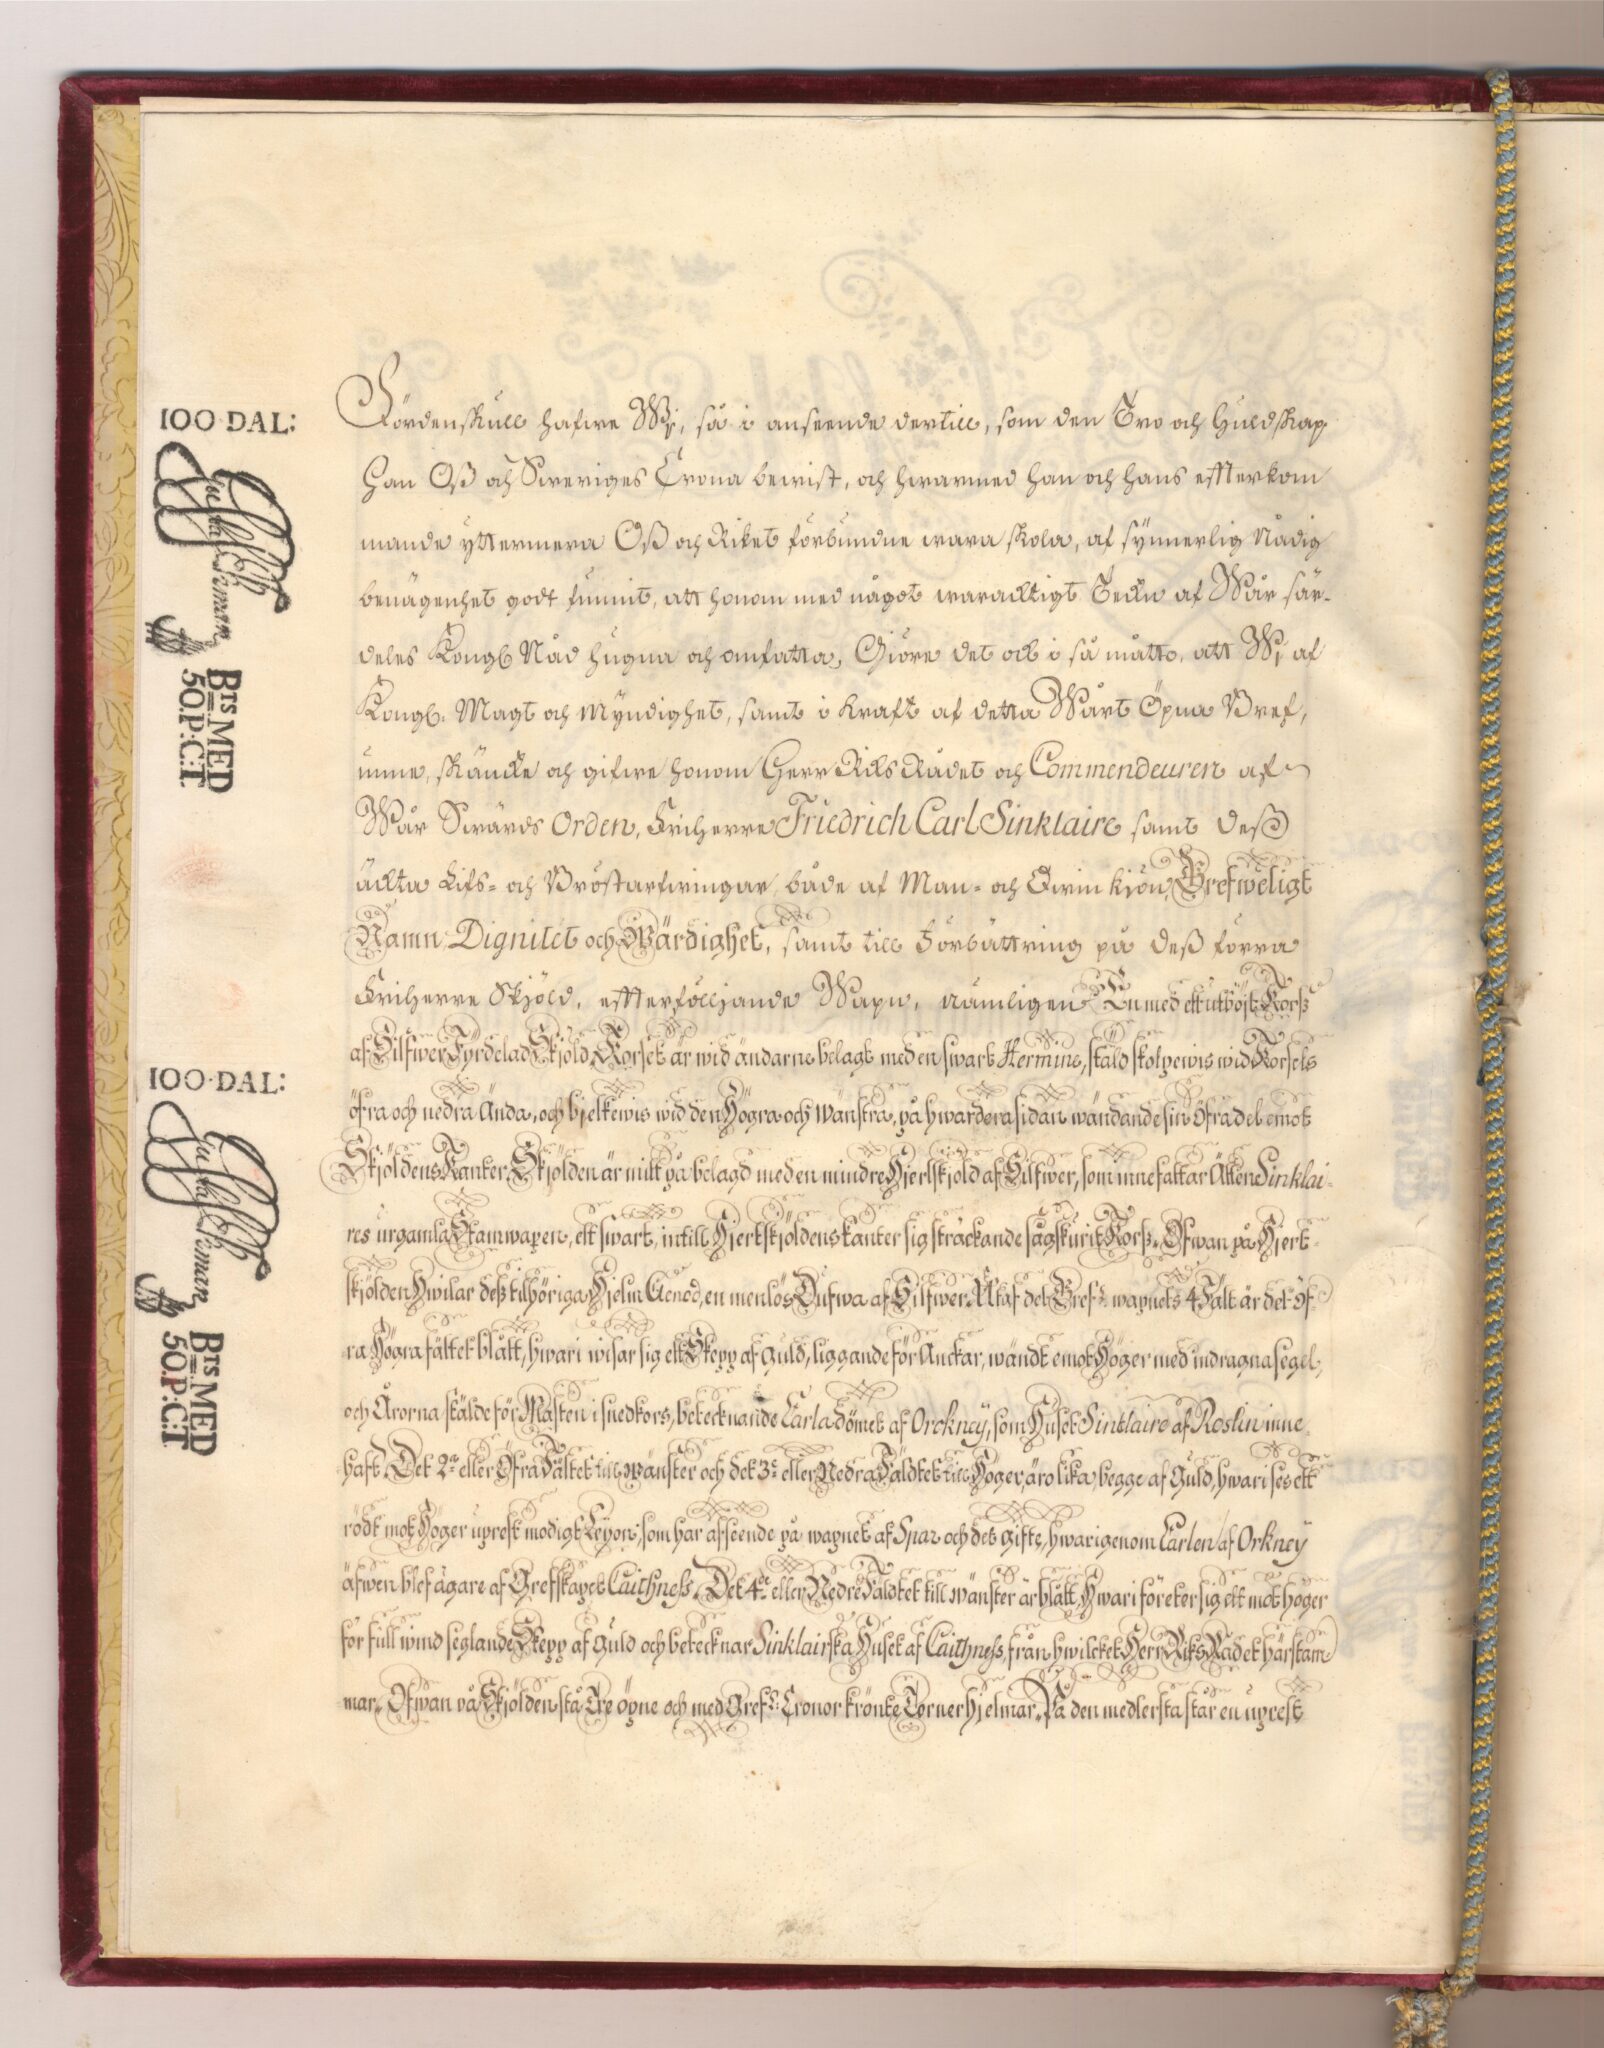 100 DAL:
Brs MED
50.P:C:T
100·DAL:
Brs MED
50.P:C:T
Fördenskull hafwe Wj, så i anseende dertill, som den Tro och Huldskap
Han Oß och Sweriges Crona bewist, och hwarmed han och hans effterkom
mande yttermera Oß och Riket förbundne wara skola, af synnerlig Nådig
benägenhet godt funnit, att honom med något waracktigt Teckn af Wår sär-
deles Kongl Nåd hugna och omfatta, Giöre det ock i så matto, att Wj af
Kongl: Magt och Myndighet, samt i kraft af detta Wårt Öpna Bref,
unne, skäncke och gifwe honom Herr Riks Rådet och Commendeuren af
Wår Swärds Orden, Friherre Friedrich Carl Sinklaire samt deß
äckta Lifs- och Bröstarfwingar både af Man- och Qwin kjön, Grefweligt
Namn, Dignitet och Wärdighet, samt till Förbättring på deß förra
Friherre Skjöld, effterfölljande Wapn, nämligen En med ett utböjt Korß
af Silfwer Fyrdelad Skjöld, Korset är wid ändarne belagt med en swart Hermine, stäld stolpewis wid Korsets
öfra och nedra Ända, och bjelkewis wid den Högra och Wänstra, på hwardera sidan wändande sin Öfra del emot
Skjöldens Kanter, Skjölden är mitt på belagd med en mindre Hjertskjöld af Silfwer, som innefattar Ätten Sinklai-
res urgamla Stamwapen, ett swart, intill Hjertskjöldens kanter sig sträckande sågskurit Korß. Ofwan på Hjert-
skjölden Hwilar deß tilhöriga Hjelm en menlös Dufwa af Silfwer. Utaf det Grefl: wapnets 4 Fält är det Öf-
ra Högra fältet blått, hwari wisar sig ett Skepp af Guld, liggande för Anckar, wändt emot Höger med indragna segel,
och Årorna stälde för Masten i snedkors, betecknande Earladömet af Orckney, som Huset Sinklaire af Roslin inne-
haft. Det 2a eller Öfra Fältet till wänster och det 3e eller Nedra Fäldtet till Höger, äro lika, begge af Guld, hwari ses ett
rödt mot Höger uprest modigt Leyon, som har afseende på wapnet af Spar och det gifte, hwarigenom Earlen af Orkney
äfwen blef ägare af Grefskapet Caithneß. Det 4de eller Nedre Fäldtet till wänster är blått, Hwari företer sig ett mot höger
för full wind seglande Skepp af Guld och betecknar Sinklairska Huset af Caithneß, från hwilcket Herr Riks Rådet härstam-
mar. Ofwan på Skjölden stå Tre öpne och med Grefl: Cronor krönte Torner hjelmar. På den medlersta står en uprest